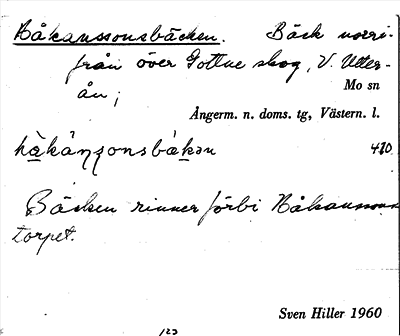 Håkanssonsbäcken. Bäck norri-
från över Gottne skog, V. Utter-
ån;
Mo sn
Ångerm. n. doms. tg, Västern. l.
470
Bäcken rinner förbi Håkanssons
torpet.
Sven Hiller 1960
123